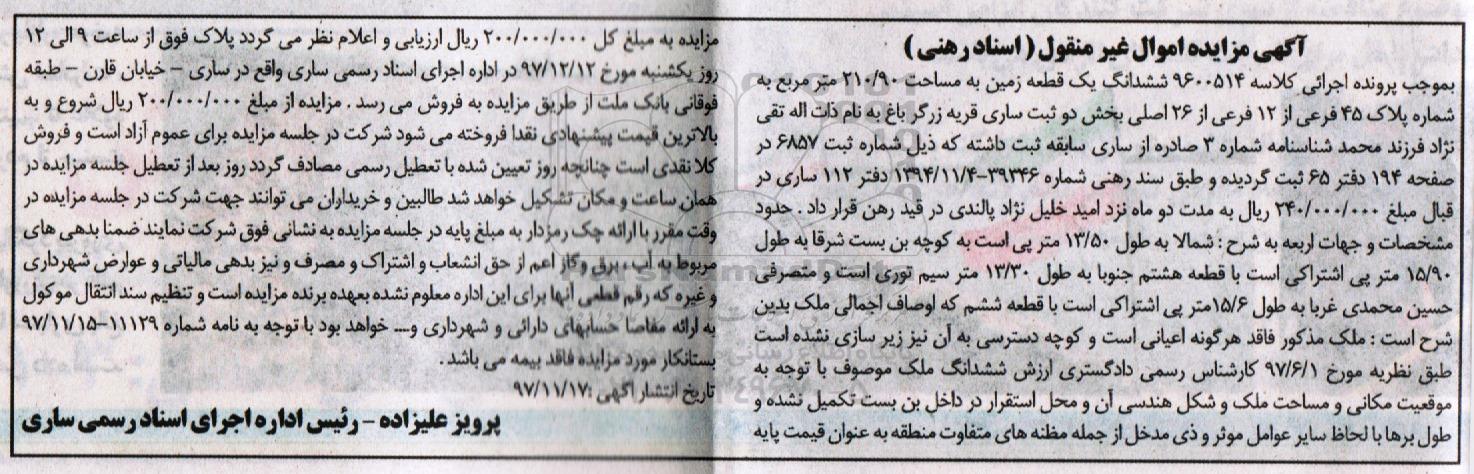 آگهی مزایده اموال غیر منقول ( اسناد رهنی )
بموجب پرونده اجرائی کلاسه ۹۶۰۰۵۱۴ ششدانگ یک قطعه زمین به مساحت ۲۱۰/۹۰ متر مربع به
شماره پلاک ۴۵ فرعی از ۱۲ فرعی از ۲۶ اصلی بخش دو ثبت ساری قریه زرگر باغ به نام ذات اله تقی
نژاد فرزند محمد شناسنامه شماره ۳ صادره از ساری سابقه ثبت داشته که ذیل شماره ثبت ۶۸۵۷ در
صفحه ۱۹۴ دفتر ۶۵ ثبت گردیده و طبق سند رهنی شماره ۳۹۳۴۶-۱۳۹۴/۱۱/۴ دفتر ۱۱۲ ساری در
قبال مبلغ ۲۴۰/۰۰۰/۰۰۰ ریال به مدت دو ماه نزد امید خلیل نژاد پالندی در قید رهن قرار داد . حدود
مشخصات و جهات اربعه به شرح : شمالا به طول ۱۳/۵۰ متر پی است به کوچه بن بست شرقا به طول
۱۵/۹۰ متر پی اشتراکی است با قطعه هشتم جنوبا به طول ۱۳/۳۰ متر سیم توری است و متصرفی
حسین محمدی غربا به طول ۱۵/۶متر پی اشتراکی است با قطعه ششم که اوصاف اجمالی ملک بدین
شرح است : ملک مذکور فاقد هرگونه اعیانی است و کوچه دسترسی به آن نیز زیر سازی نشده است
طبق نظریه مورخ ۹۷/۶/۱ کارشناس رسمی دادگستری ارزش ششدانگ ملک موصوف با توجه به
موقعیت مکانی و مساحت ملک و شکل هندسی آن و محل استقرار در داخل بن بست تکمیل نشده و
طول برها با لحاظ سایر عوامل موثر و ذی مدخل از جمله مظنه های متفاوت منطقه به عنوان قیمت پایه
مزایده به مبلغ کل ۲۰۰/۰۰۰/۰۰۰ ریال ارزیابی و اعلام نظر می گردد پلاک فوق از ساعت ۹ الی ۱۲
روز یکشنبه مورخ ۹۷/۱۲/۱۲ در اداره اجرای اسناد رسمی ساری واقع در ساری - خیابان قارن - طبقه
فوقانی بانک ملت از طریق مزایده به فروش می رسد . مزایده از مبلغ ۲۰۰/۰۰۰/۰۰۰ ریال شروع و به
بالاترین قیمت پیشنهادی نقدا فروخته می شود شرکت در جلسه مزایده برای عموم آزاد است و فروش
کلا نقدی است چنانچه روز تعیین شده با تعطیل رسمی مصادف گردد روز بعد از تعطیل جلسه مزایده در
همان ساعت و مکان تشکیل خواهد شد طالبین و خریداران می توانند جهت شرکت در جلسه مزایده در
وقت مقرر با ارائه چک رمزدار به مبلغ پایه در جلسه مزایده به نشانی فوق شرکت نمایند ضمنا بدهی های
مربوط به آب ، برق وگاز اعم از حق انشعاب و اشتراک و مصرف و نیز بدهی مالیاتی و عوارض شهرداری
و غیره که رقم قطعی آنها برای این اداره معلوم نشده بعهده برنده مزایده است و تنظیم سند انتقال موکول
به ارائه مفاصا حسابهای دارائی و شهرداری و... خواهد بود با توجه به نامه شماره ۱۱۱۲۹-۹۷/۱۱/۱۵
بستانکار مورد مزایده فاقد بیمه می باشد .
تاریخ انتشار آگهی :۹۷/۱۱/۱۷
پرویز علیزاده - رئیس اداره اجرای اسناد رسمی ساری